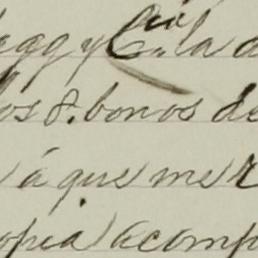 eggy Cia. la d
os 8. bonos de
á que mer
opia acomp